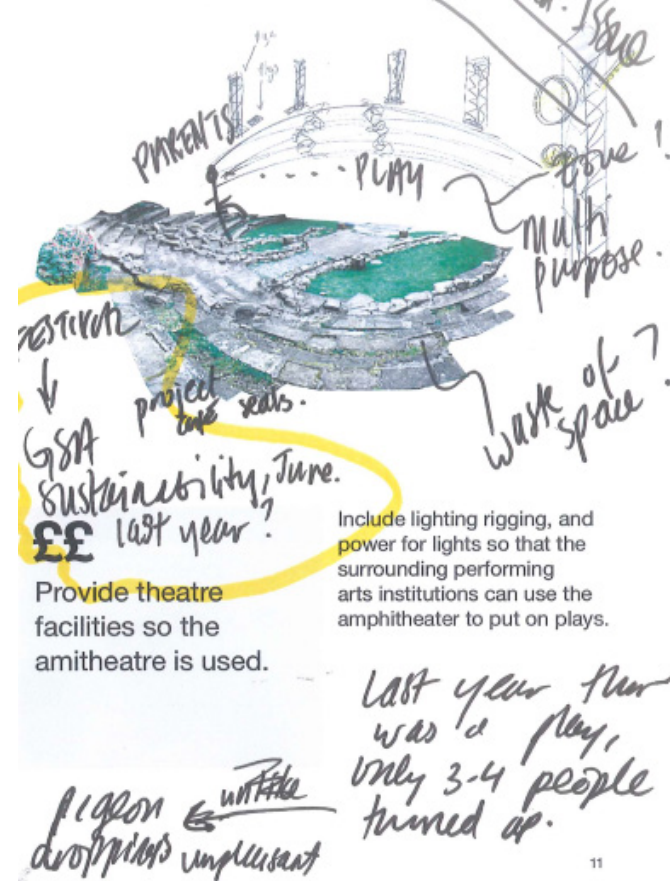 Issue
PARENTS
PLAY
zone!
Multi
purpose.
FESTIVAL
project
seats.
waste of
space?
GSA
sustainability, June.
last year?
££
Provide theatre
facilities so the
amitheatre is used.
Include lighting rigging, and
power for lights so that the
surrounding performing
arts institutions can use the
amphitheater to put on plays.
last year there
was a play,
only 3-4 people
turned up.
pigeon
droppings unpleasant
11